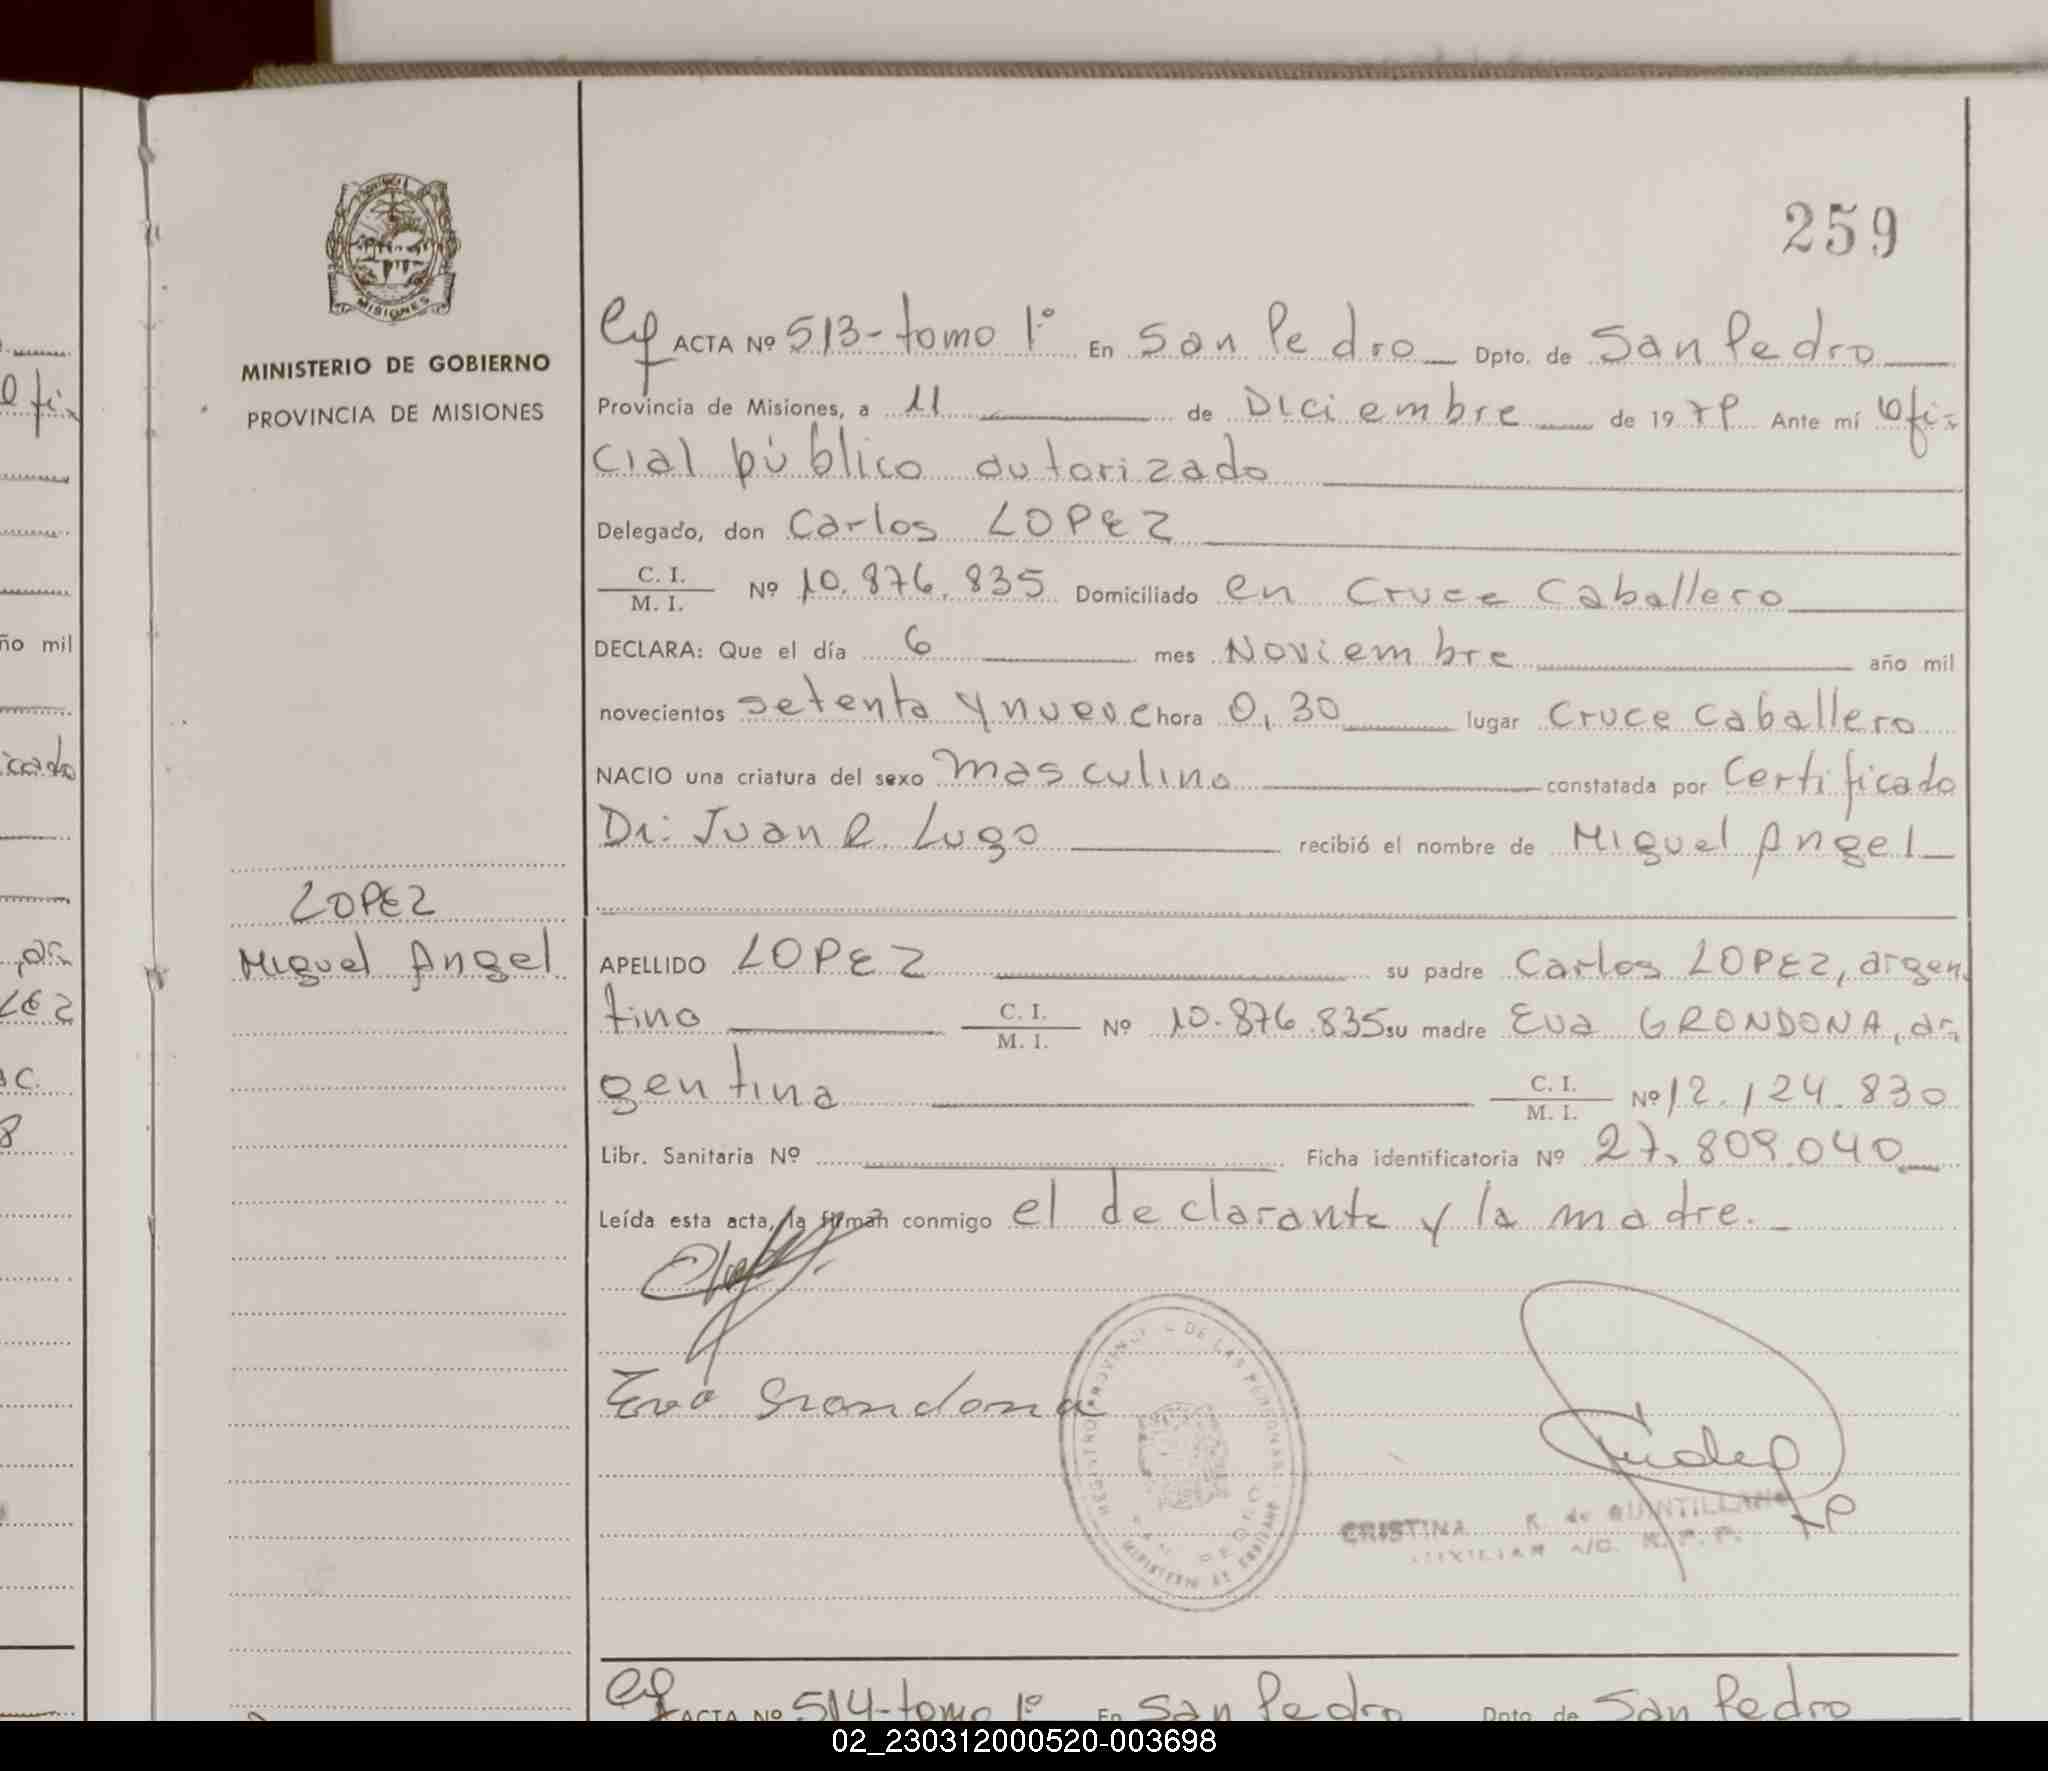 259
MINISTERIO DE GOBIERNO
PROVINCIA DE MISIONES
MISIONES
ACTA Nº 513-tomo 1º En San Pedro Dpto. de San Pedro
Provincia de Misiones, a 11 de Diciembre de 1979 Ante mí Ofi-
cial público autorizado
Delegado, don Carlos LOPEZ
C. I.
M. I. Nº 10.876.835 Domiciliado en Cruce Caballero
DECLARA: Que el día 6 mes Noviembre año mil
novecientos setenta y nueve hora 0,30 lugar Cruce Caballero
NACIO una criatura del sexo masculino constatada por Certificado
Dr: Juan R. Lugo recibió el nombre de Miguel Angel
LOPEZ
Miguel Angel
APELLIDO LOPEZ su padre Carlos LOPEZ, argen
tino C. I.
M. I. Nº 10.876.835 su madre Eva GRONDONA, ar
gentina C. I.
M. I. Nº 12.124.830
Libr. Sanitaria Nº Ficha identificatoria Nº 27.809.040
Leída esta acta, la firman conmigo el declarante y la madre.
Eva Grondona
DE LAS PERSONAS
MINISTERIO DE GOBIERNO
CRISTINA R. de QUINTILLANO
AUXILIAR A/C. R. P. P.
ACTA Nº 514-tomo 1º En San Pedro Dpto. de San Pedro
ño mil
icado
02_230312000520-003698